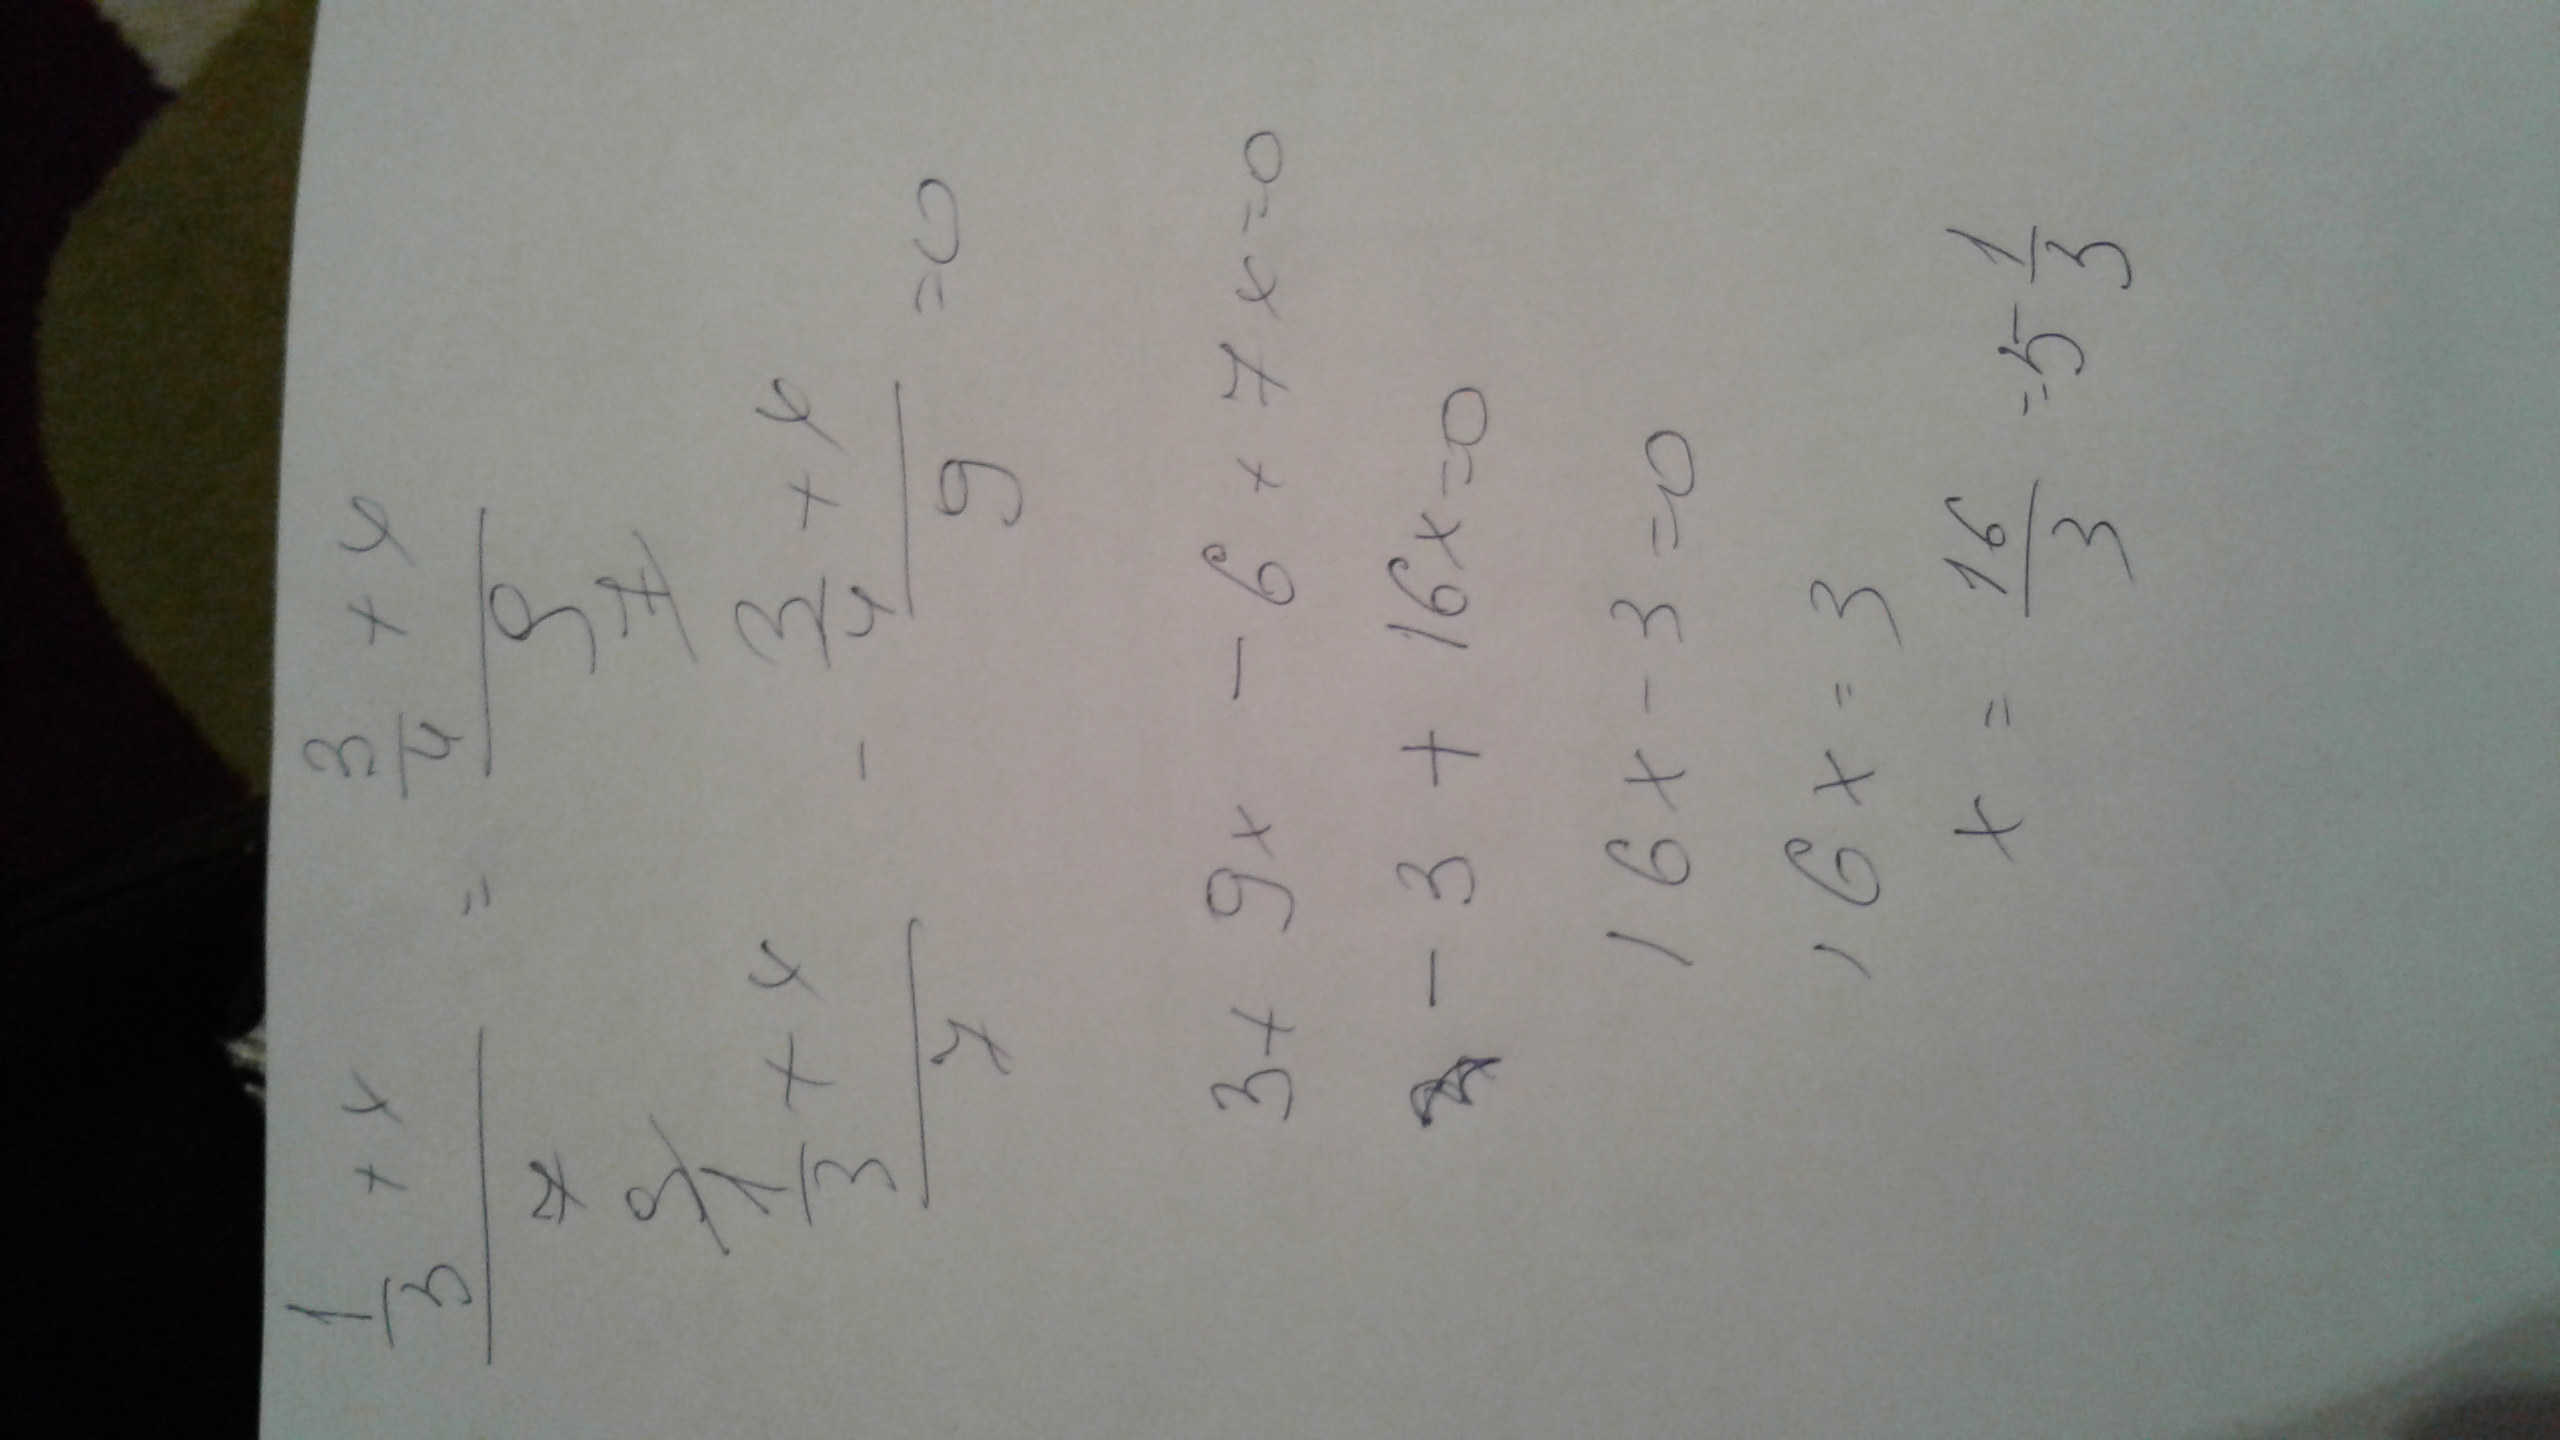 (1/3 + x)/7 = (3/4 + x)/9
(1/3 + x)/7 - (3/4 + x)/9 = 0
3 + 9x - 6 + 7x = 0
- 3 + 16x = 0
16x - 3 = 0
16x = 3
x = 16/3 = 5 1/3